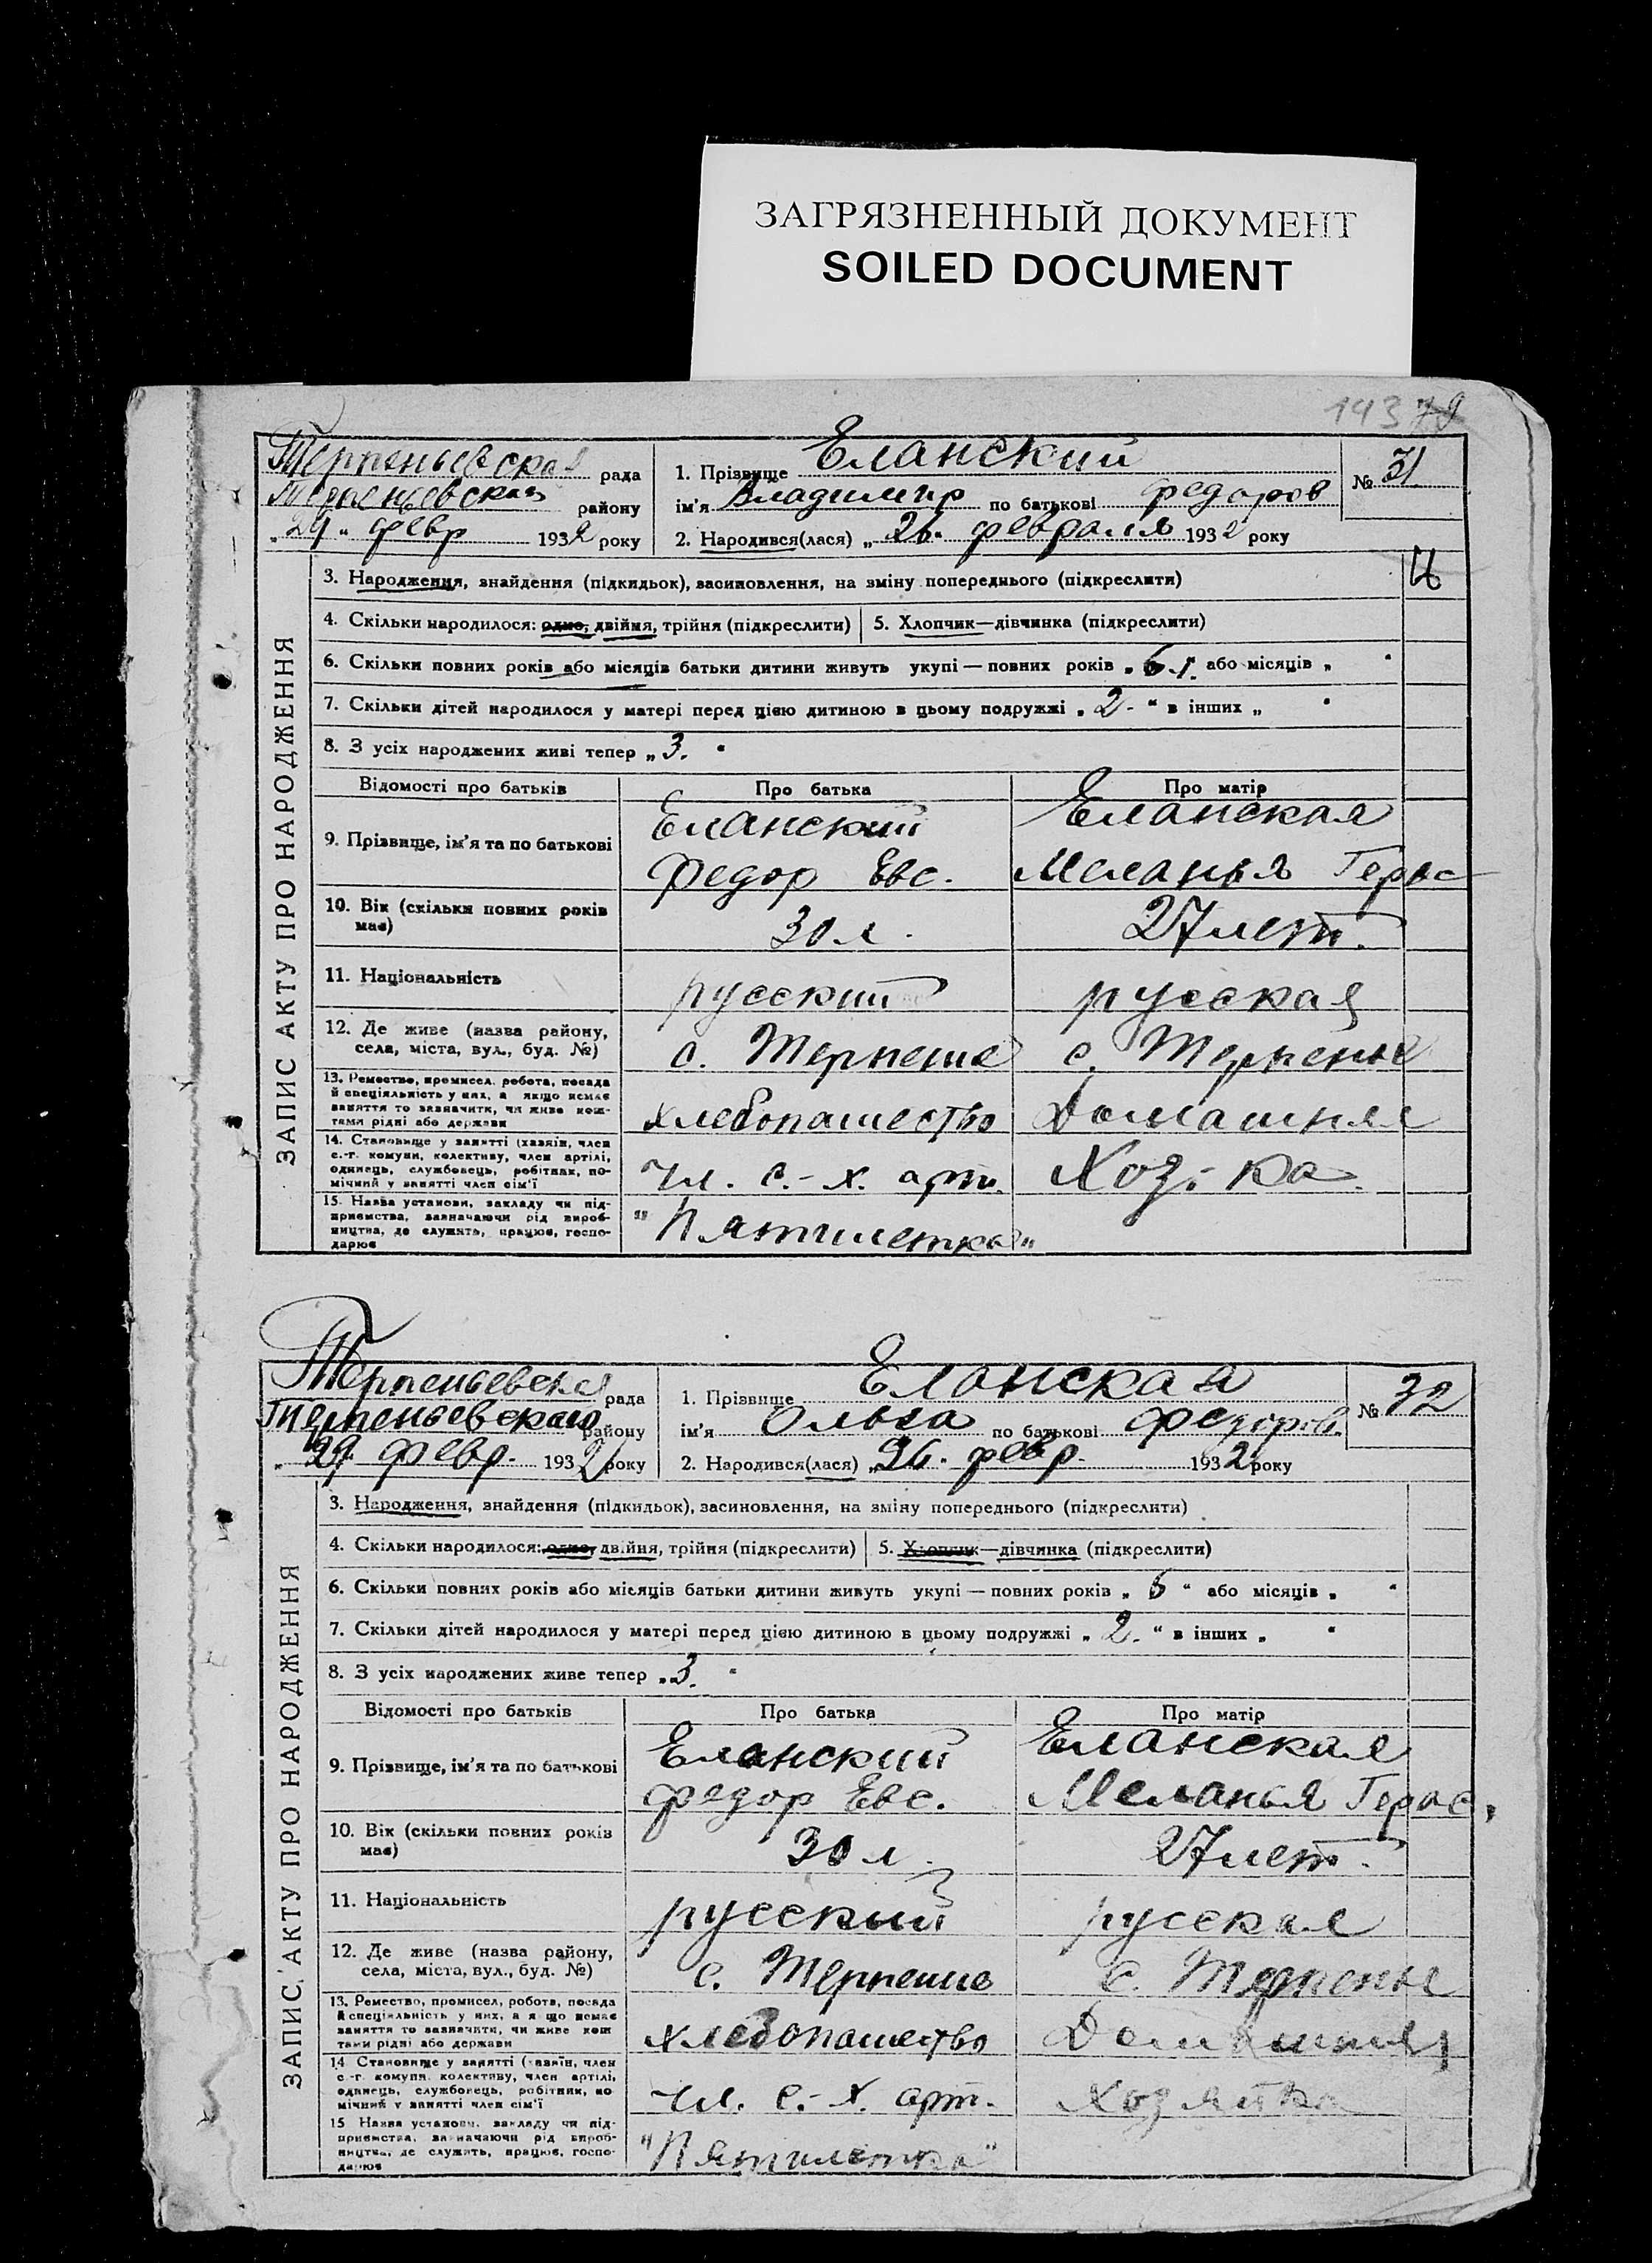 ЗАГРЯЗНЕННЫЙ ДОКУМЕНТ
SOILED DOCUMENT
193
Терпеньевская рада
района
"29" февр 1932 року
1. Прізвище Еланский
ім'я Владимир по батькові Федоров
2. Народився(лася) „26. февраля 1932 року
№ 31
ЗАПИС АКТУ ПРО НАРОДЖЕННЯ
3. Народження, знайдення (підкидьок), засиновлення, на зміну попереднього (підкреслити)
4. Скільки народилося: одно, двійня, трійня (підкреслити) 5. Хлопчик—дівчинка (підкреслити)
6. Скільки повних років або місяців батьки дитини живуть укупі — повних років „ або місяців „ "
7. Скільки дітей народилося у матері перед цією дитиною в цьому подружжі „ 2. " в інших „ "
8. З усіх народжених живі тепер „ 3. "
Відомості про батьків Про батька Про матір
9. Прізвище, ім'я та по батькові
Еланский
Федор Евс.
Еланская
Меланья Герас
10. Вік (скільки повних років має) 30 л. 27 лет.
11. Національність русский русская
12. Де живе (назва району, села, міста, вул., буд. №) с. Терпение с. Терпенье
13. Ремество, промисел, робота, посада
й спеціяльність у них, а якщо немає
заняття то зазначити, чи живе кош-
тами рідні або держави
хлебопашество Домашняя
14. Становище у занятті (хазяїн, член
с.-г. комуни, колективу, член артілі,
одинець, службовець, робітник, по-
мічний у занятті член сім'ї
чл. с.-х. арт. Хоз-ка
15. Назва установи, закладу чи під-
приємства, зазначаючи рід вироб-
ництва, де служить, працює, госпо-
дарює
"Пятилетка"
Терпеньевская рада
Терпеньевского району
" 29 " февр. 1932 року
1. Прізвище Еланская
ім'я Ольга по батькові Федоров.
2. Народився(лася) „26. февр. 1932 року
№ 32
ЗАПИС АКТУ ПРО НАРОДЖЕННЯ
3. Народження, знайдення (підкидьок), засиновлення, на зміну попереднього (підкреслити)
4. Скільки народилося: одно, двійня, трійня (підкреслити) 5. Хлопчик—дівчинка (підкреслити)
6. Скільки повних років або місяців батьки дитини живуть укупі — повних років „ 6 " або місяців „ "
7. Скільки дітей народилося у матері перед цією дитиною в цьому подружжі „ 2. " в інших „ "
8. З усіх народжених живе тепер „ 3. "
Відомості про батьків Про батька Про матір
9. Прізвище, ім'я та по батькові
Еланский
Федор Евс.
Еланская
Меланья Герас.
10. Вік (скільки повних років має) 30 л. 27 лет.
11. Національність русский русская
12. Де живе (назва району, села, міста, вул., буд. №) с. Терпение с. Терпенье
13. Ремество, промисел, робота, посада
й спеціяльність у них, а якщо немає
заняття то зазначити, чи живе кош
тами рідні або держави
хлебопашество Домашняя
14 Становище у занятті (хазяїн, член
с.-г. комуни, колективу, член артілі,
одинець, службовець, робітник, по
мічний у занятті член сім'ї
чл. с.-х. арт. Хозяйка
15 Назва установи, закладу чи під-
приємства, зазначаючи рід вироб-
ництва, де служить, працює, госпо-
дарює
"Пятилетка"